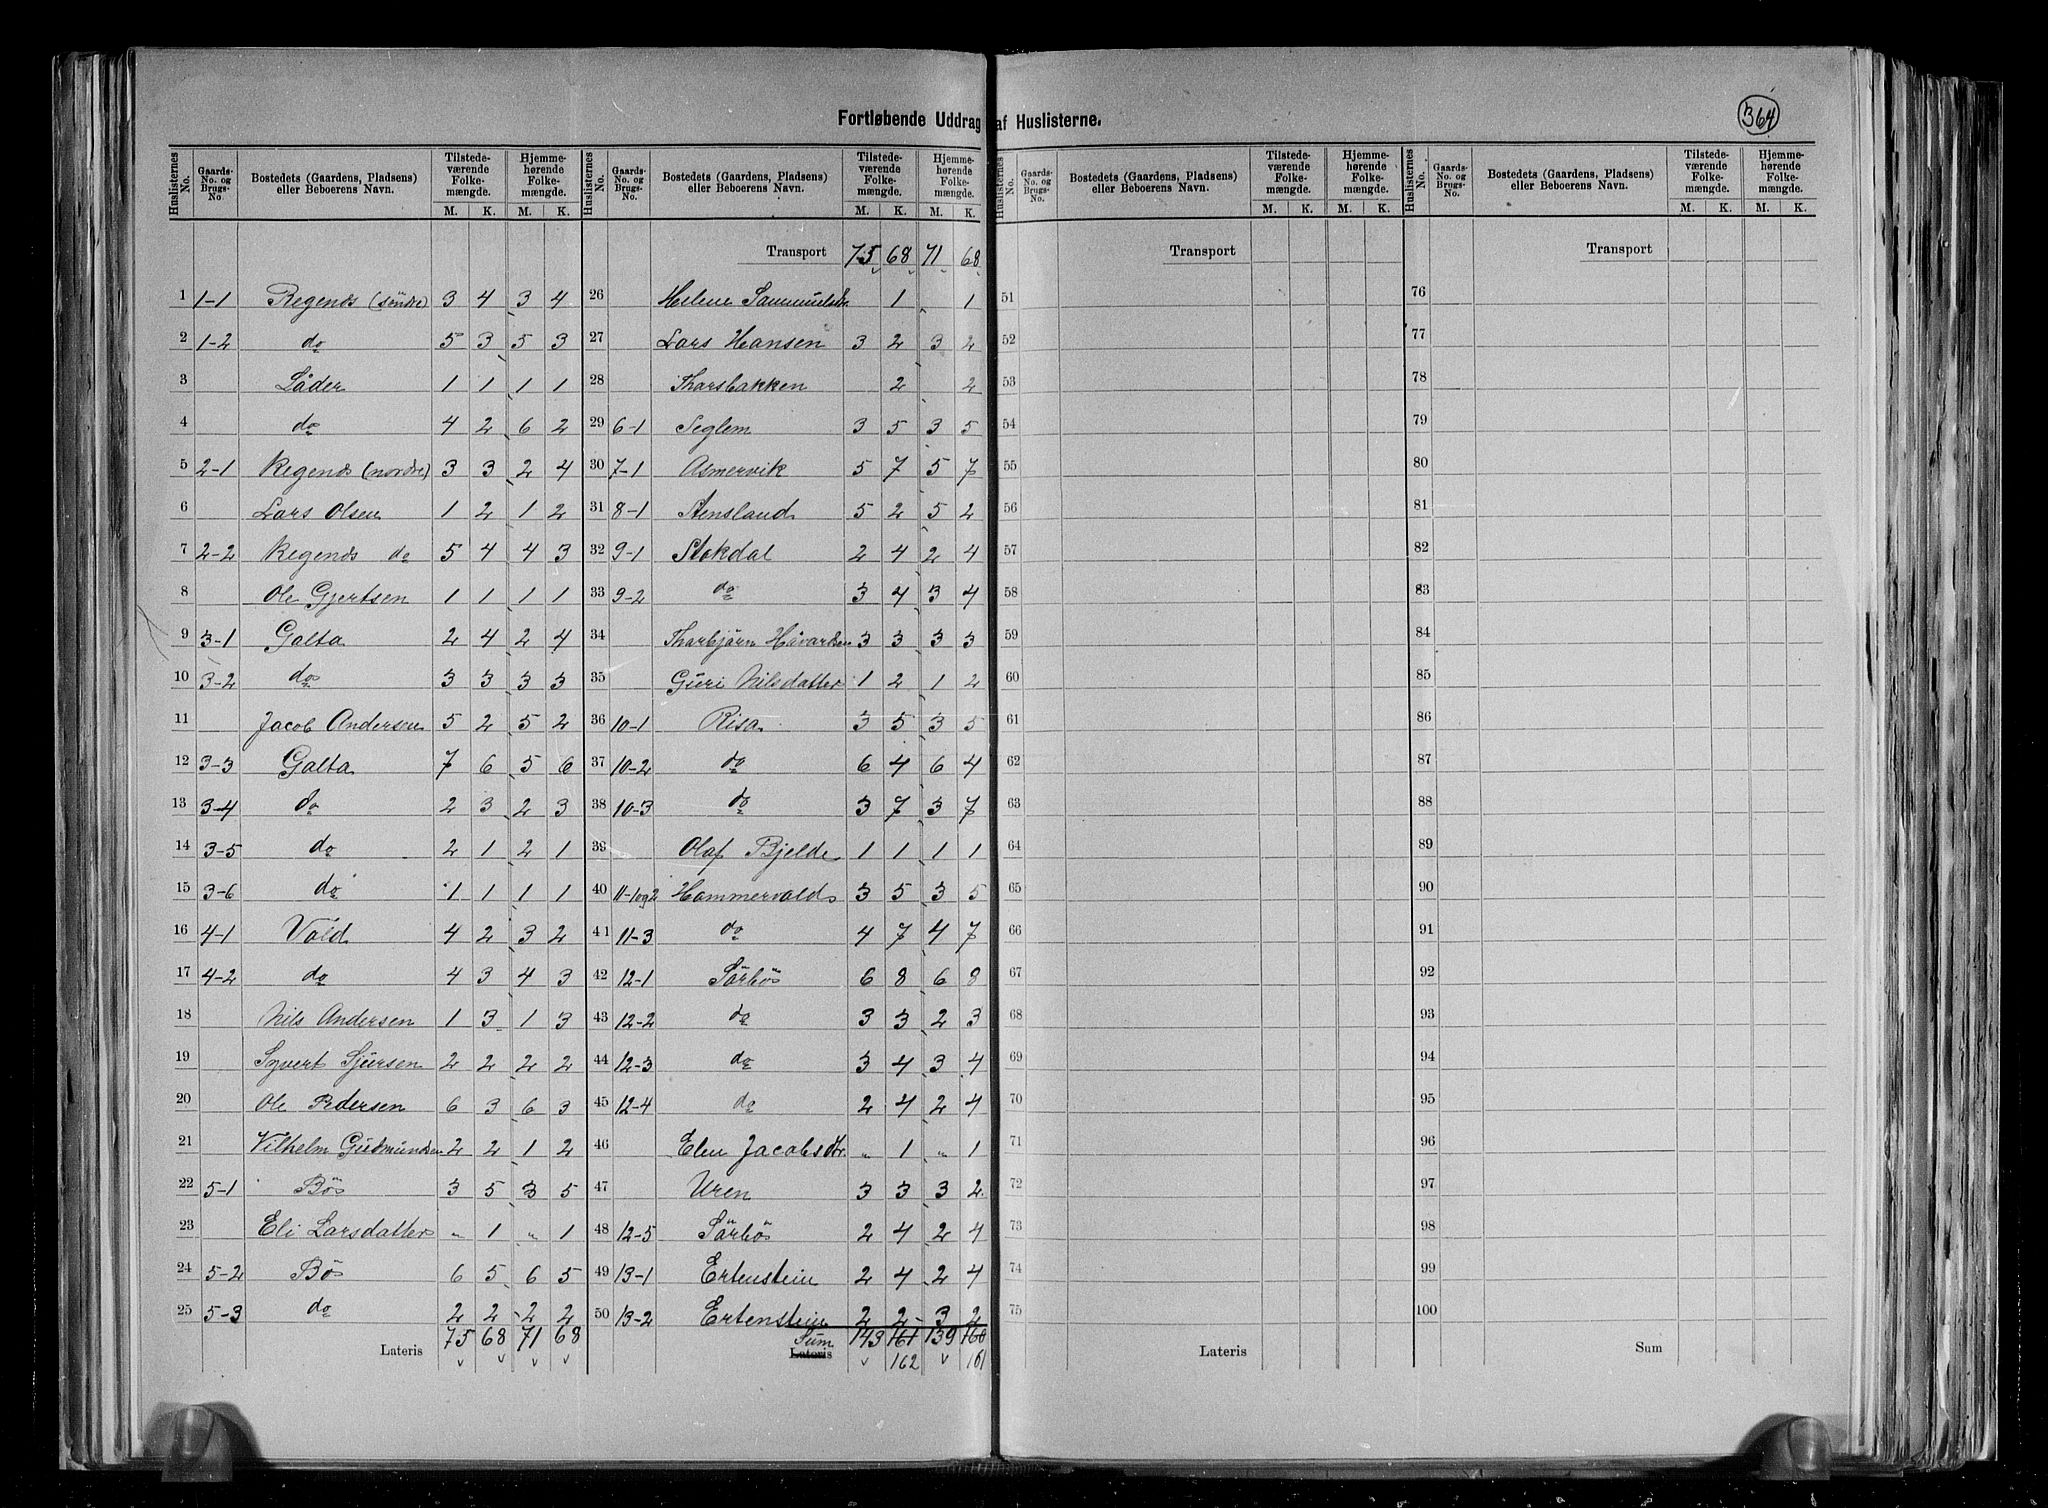 364
Fortløbende Uddrag af Huslisterne.
Huslisternes No. Gaards-No. og Brugs-No. Bostedets (Gaardens, Pladsens) eller Beboerens Navn. Tilstedeværende Folkemængde. M. K. Hjemmehørende Folkemængde. M. K.
1 1-1 Regenes (söndre) 3 4 3 4
2 1-2 do 5 3 5 3
3 Låder 1 1 1 1
4 do 4 2 6 2
5 2-1 Regenes (nordre) 3 3 2 4
6 Lars Olsen 1 2 1 2
7 2-2 Regenes do 5 4 4 3
8 Ole Gjertsen 1 1 1 1
9 3-1 Galta 2 4 2 4
10 3-2 do 3 3 3 3
11 Jacob Andersen 5 2 5 2
12 3-3 Galta 7 6 5 6
13 3-4 do 2 3 2 3
14 3-5 do 2 1 2 1
15 3-6 do 1 1 1 1
16 4-1 Vold 4 2 3 2
17 4-2 do 4 3 4 3
18 Nils Andersen 1 3 1 3
19 Syvert Sjursen 2 2 2 2
20 Ole Pedersen 6 3 6 3
21 Vilhelm Gudmundsen 2 2 1 2
22 5-1 Bös 3 5 3 5
23 Eli Larsdatter " 1 " 1
24 5-2 Bös 6 5 6 5
25 5-3 do 2 2 2 2
Lateris 75 68 71 68
Huslisternes No. Gaards-No. og Brugs-No. Bostedets (Gaardens, Pladsens) eller Beboerens Navn. Tilstedeværende Folkemængde. M. K. Hjemmehørende Folkemængde. M. K.
Transport 75 68 71 68
26 Helene Sammuelsdtr. 1 1
27 Lars Hansen 3 2 3 2
28 Tharsbakken 2 2
29 6-1 Seglem 3 5 3 5
30 7-1 Asmervik 5 7 5 7
31 8-1 Stensland 5 2 5 2
32 9-1 Stokdal 2 4 2 4
33 9-2 do 3 4 3 4
34 Tharbjörn Håvardsen 3 3 3 3
35 Guri Nilsdatter 1 2 1 2
36 10-1 Risa 3 5 3 5
37 10-2 do 6 4 6 4
38 10-3 do 3 7 3 7
39 Olaf Bjelde 1 1 1 1
40 11-1og2 Hammervold 3 5 3 5
41 11-3 do 4 7 4 7
42 12-1 Sörbös 6 8 6 8
43 12-2 do 3 3 2 3
44 12-3 do 3 4 3 4
45 12-4 do 2 4 2 4
46 Elen Jacobsdtr. " 1 " 1
47 Uren 3 3 3 2
48 12-5 Sörbös 2 4 2 4
49 13-1 Ertenstein 2 4 2 4
50 13-2 Ertenstein 2 2 3 2
Sum 143 161 139 160
Lateris 162 161
Huslisternes No. Gaards-No. og Brugs-No. Bostedets (Gaardens, Pladsens) eller Beboerens Navn. Tilstedeværende Folkemængde. M. K. Hjemmehørende Folkemængde. M. K.
Transport
51
52
53
54
55
56
57
58
59
60
61
62
63
64
65
66
67
68
69
70
71
72
73
74
75
Lateris
Huslisternes No. Gaards-No. og Brugs-No. Bostedets (Gaardens, Pladsens) eller Beboerens Navn. Tilstedeværende Folkemængde. M. K. Hjemmehørende Folkemængde. M. K.
Transport
76
77
78
79
80
81
82
83
84
85
86
87
88
89
90
91
92
93
94
95
96
97
98
99
100
Sum